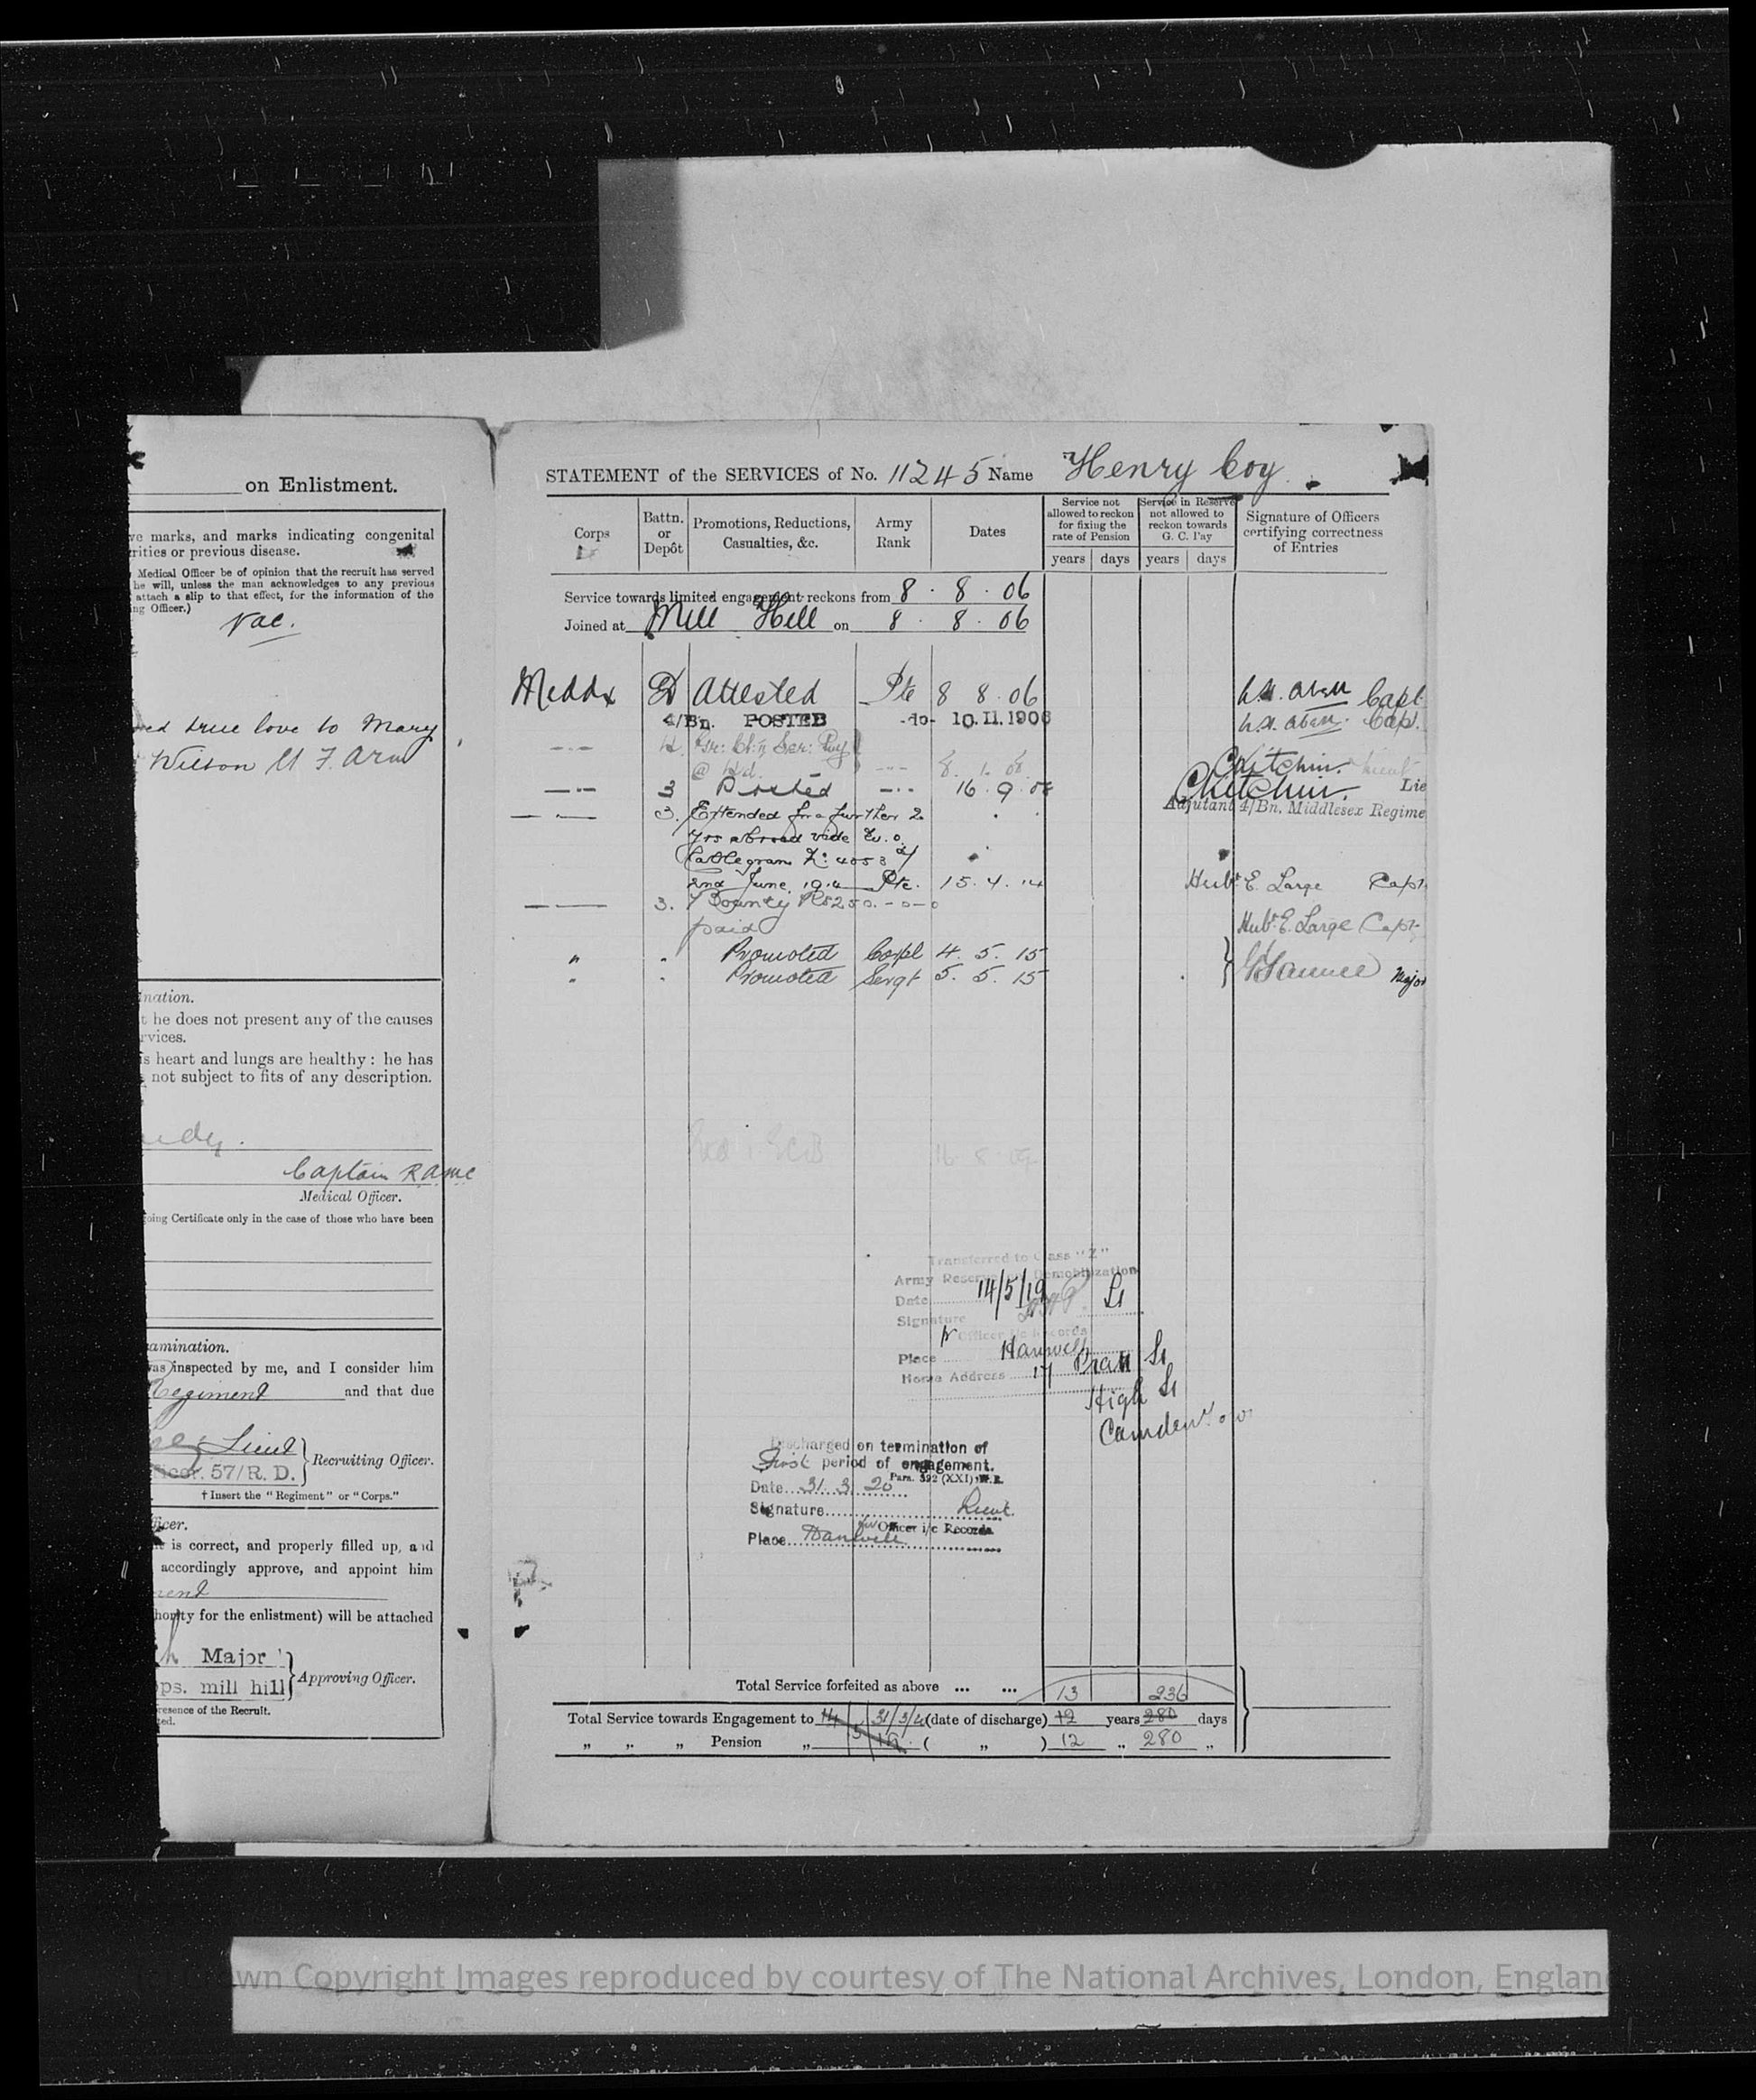 on Enlistment.
ve marks, and marks indicating congenital
rities or previous disease.
Medical Officer be of opinion that the recruit has served
he will, unless the man acknowledges to any previous
attach a slip to that effect, for the information of the
ng Officer.)
Vac.
ed true love to Mary
Wilson U F. Arm
ination.
t he does not present any of the causes
rvices.
s heart and lungs are healthy : he has
not subject to fits of any description.
Captain RAMC
Medical Officer.
going Certificate only in the case of those who have been
amination.
was inspected by me, and I consider him
Regiment and that due
Lieut
Recruiting Officer.
ficer. 57/R. D.
† Insert the "Regiment" or "Corps."
fficer.
is correct, and properly filled up, and
accordingly approve, and appoint him
ment
hority for the enlistment) will be attached
Major
Approving Officer.
ps. mill hill
resence of the Recruit.
ted.
STATEMENT of the SERVICES of No. 11245 Name Henry Coy
Corps
Battn. or Depôt
Promotions, Reductions, Casualties, &c.
Army Rank
Dates
Service not allowed to reckon for fixing the rate of Pension
Service in Reserve not allowed to reckon towards G. C. Pay
Signature of Officers certifying correctness of Entries
years days years days
Service towards limited engagement reckons from 8 . 8 . 06
Joined at Mill Hill on 8 . 8 . 06
Middx D Attested Pte 8 8 . 06 Capt
4/Bn. POSTED -do- 10.11.1906 Capt.
@ Hd. 8. 1. 08
3 Posted 16. 9. 08 Lie
Adjutant 4/Bn. Middlesex Regime
3. Extended for a further 2
yrs abroad vide W. O.
Cablegram No 4053 d/
2nd June 1914 Pte. 15. 4. 14 Hubt E. Large Capt
3. Bounty Rs 250.-0-0
paid Hubt E. Large Capt
" " Promoted Corpl 4. 5. 15
" " Promoted Sergt 5. 5. 15 Major
Transferred to Class "Z"
Army Reserve on Demobilization
Date 14/5/19
Signature
Officer i/c Records
Place Hanwell
Home Address 17 Pratt St
High St
Camden Town
Discharged on termination of
First period of engagement.
Para. 392 (XXI), K.R.
Date 31. 3. 20
Signature Lieut.
for Officer i/c Records
Place Hanwell
Total Service forfeited as above ... ... 13 236
Total Service towards Engagement to 14 31/3/20 (date of discharge) 12 years 280 days
" " " Pension " 5 19. ( " ) 12 " 280 "
Crown Copyright Images reproduced by courtesy of The National Archives, London, England